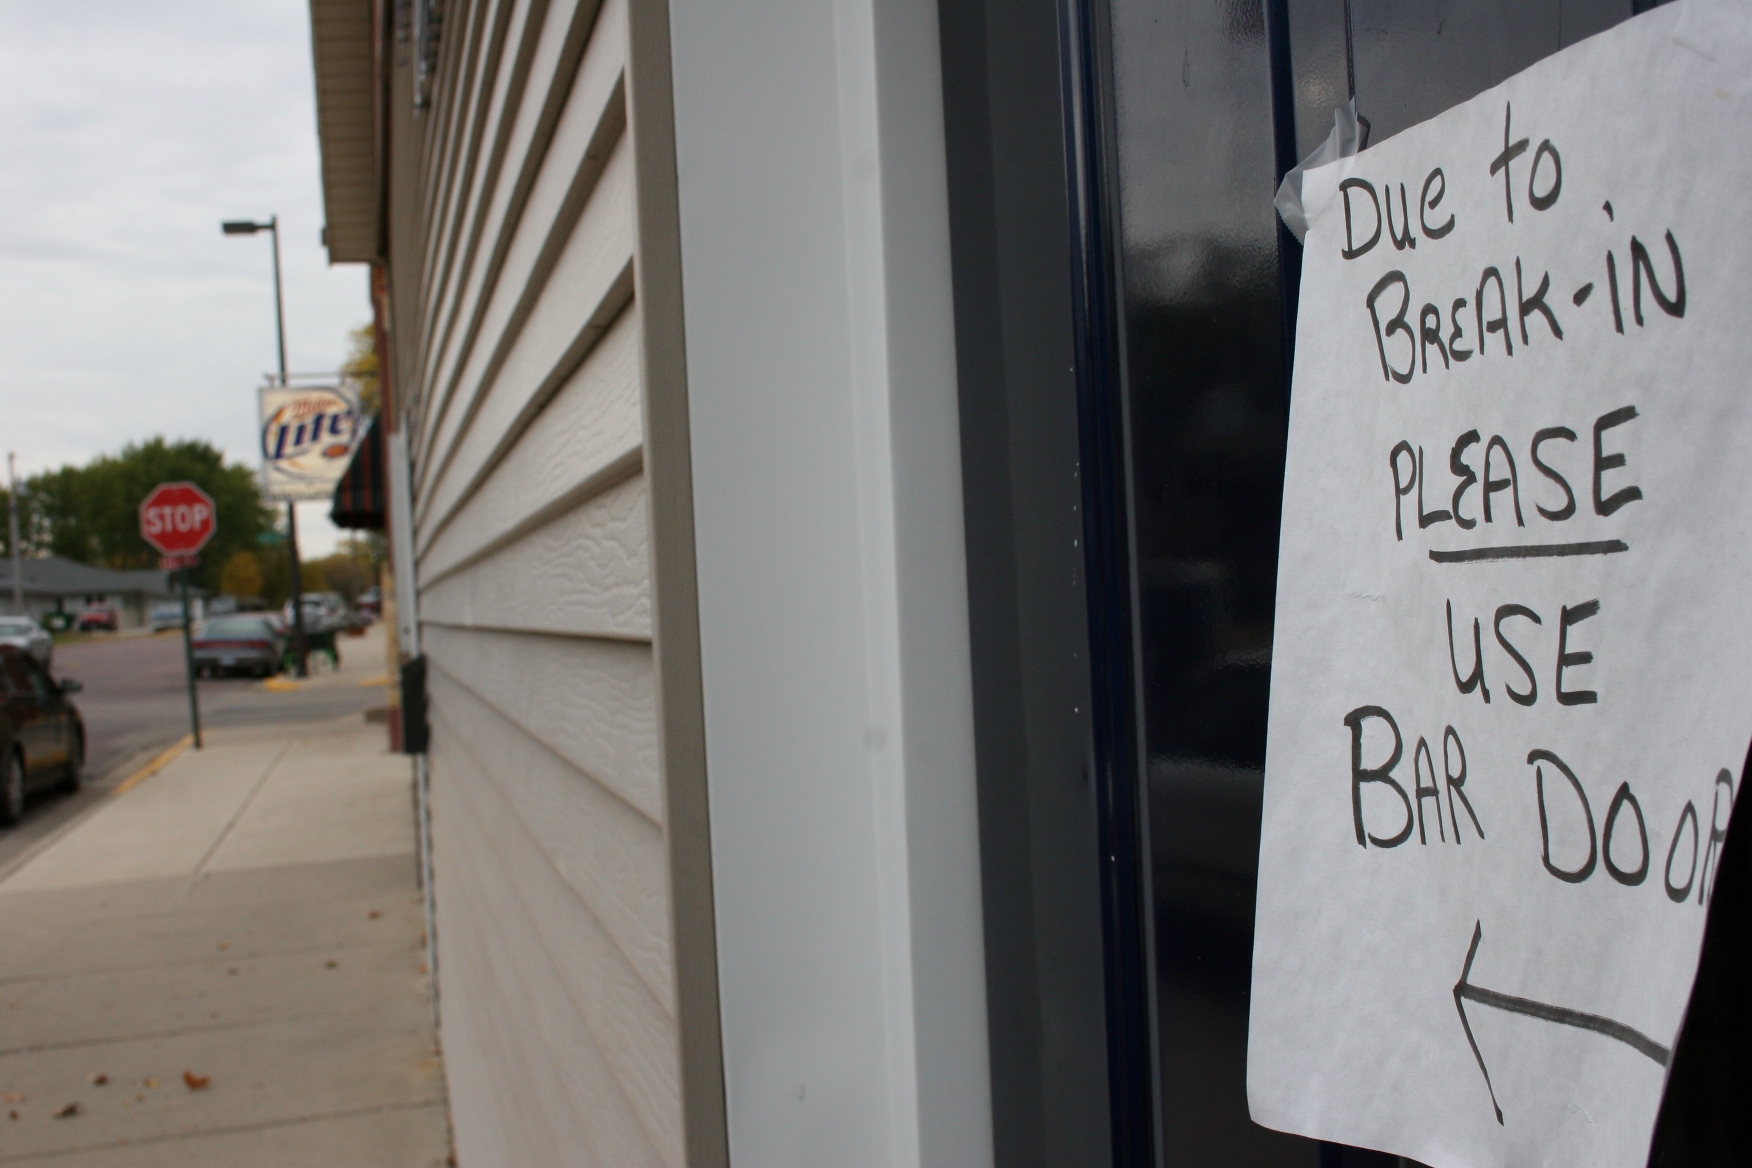 Due to
BREAK-iN
PLEASE
USE
BAR DOOR
Miller
Lite
STOP